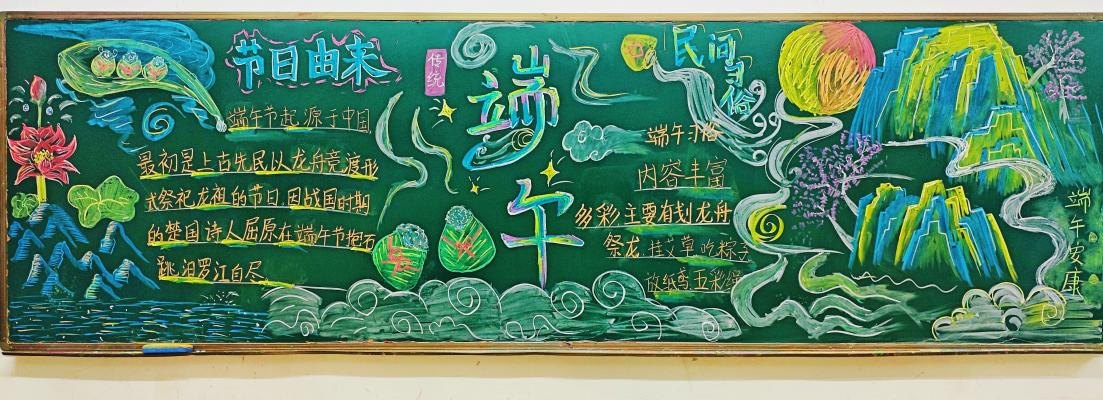 节日由来
端午节起源于中国
最初是上古先民以龙舟竞渡形
式祭祀龙祖的节日,因战国时期
的楚国诗人屈原在端午节抱石
跳汨罗江自尽
传统
端午
民间习俗
端午习俗
内容丰富
多彩主要有划龙舟
祭龙 挂艾草 吃粽子
放纸鸢 五彩绳
端午安康